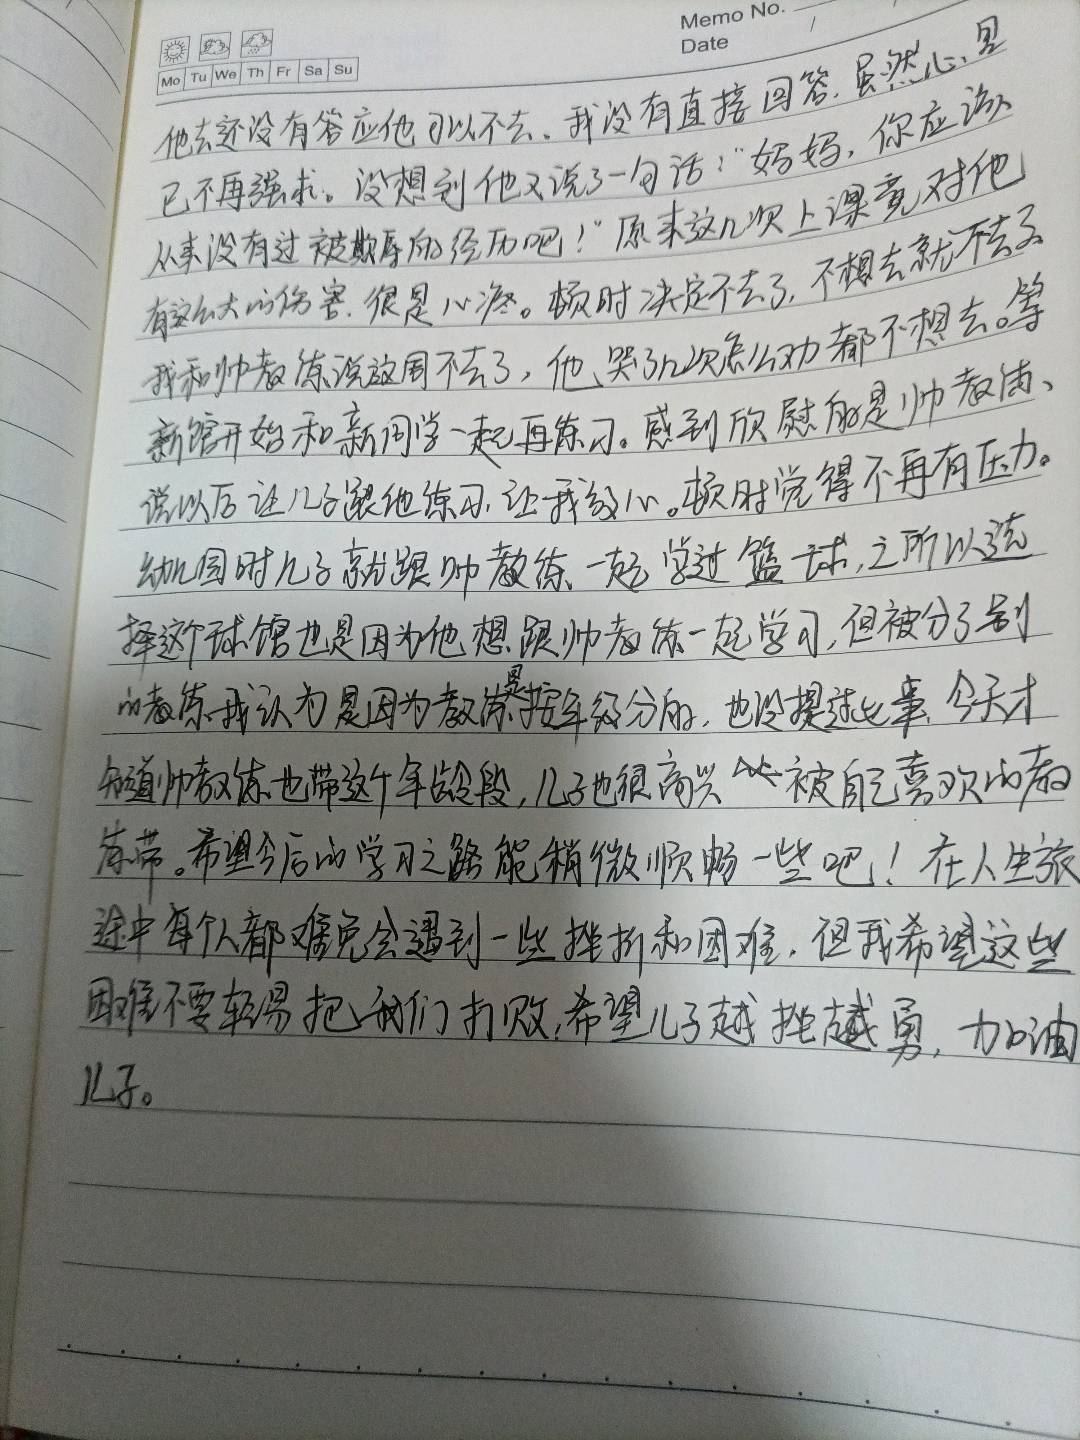 Memo No.
Date
Mo Tu We Th Fr Sa Su
他去还没有答应他可以不去、我没有直接回答.虽然心里
已不再强求。没想到他又说了一句话："妈妈，你应该
从来没有过被欺辱的经历吧！"原来这几次上课竟对他
有这么大的伤害.很是心疼。顿时决定不去了，不想去就不去了
我和帅教练说这周不去了，他哭了几次怎么劝都不想去。等
新馆开始和新同学一起再练习。感到欣慰的是帅教练、
说以后让儿子跟他练习，让我放心。顿时觉得不再有压力。
幼儿园时儿子就跟帅教练一起学过篮球，之所以选
择这个球馆也是因为他想跟帅教练一起学习，但被分了别
的教练.我认为是因为教练是按年级分的，也没提过此事.今天才
知道帅教练也带这个年龄段，儿子也很高兴 被自己喜欢的教
练带。希望今后的学习之路能稍微顺畅一些吧！在人生旅
途中每个人都难免会遇到一些挫折和困难，但我希望这些
困难不要轻易把我们打败.希望儿子越挫越勇，加油
儿子。